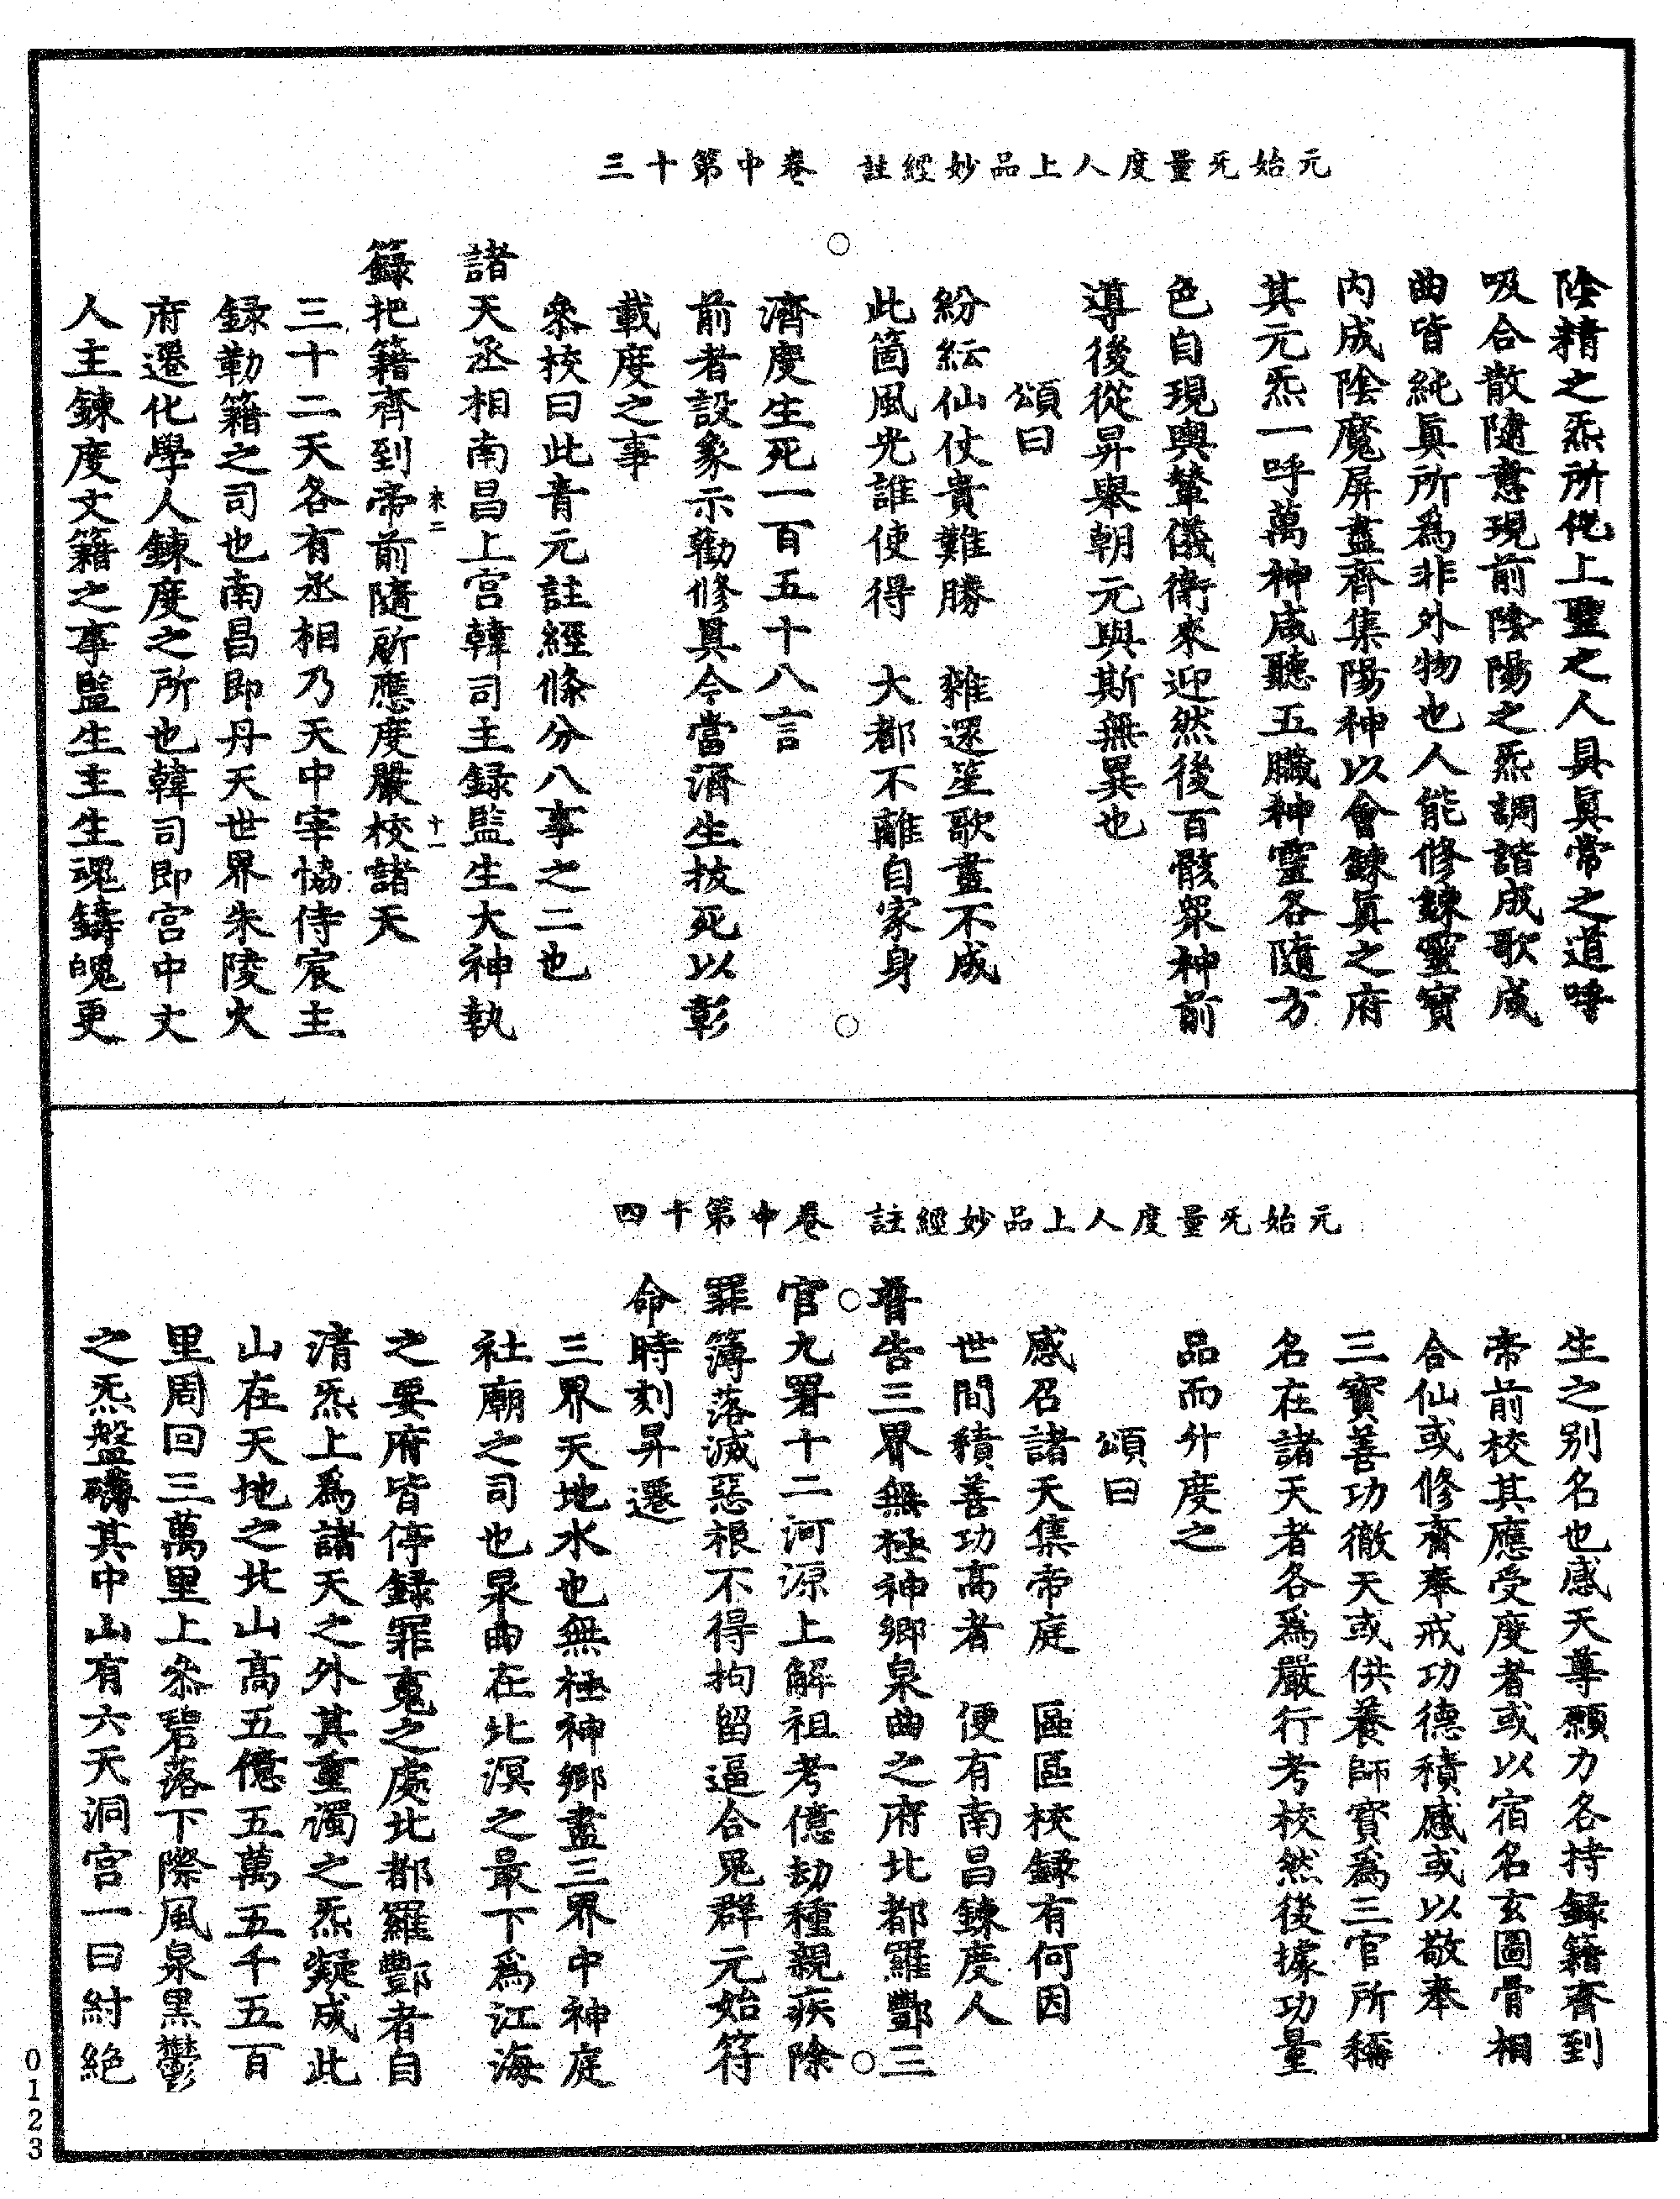 元始旡量度人上品妙經註　卷中第十三
陰精之炁所侊上聖之人具眞常之道呼
吸合散隨意現前陰陽之炁調諧成歌成
曲皆純眞所爲非外物也人能修鍊靈寶
内成陰魔屏盡齊集陽神以會鍊眞之府
其元炁一呼萬神咸聽五臟神靈各隨方
色自現輿輦儀衛來迎然後百骸衆神前
導後從昇舉朝元與斯無異也
頌曰
紛紜仙仗貴難勝　雜還笙歌盡不成
此箇風光誰使得　大都不離自家身
濟度生死一百五十八言
前者設象示勸修具今當濟生拔死以彰
載度之事
叅校曰此青元註經條分八事之二也
諸天丞相南昌上宮韓司主録監生大神執
籙把籍齊到帝前隨所應度嚴校諸天
來二　十一
三十二天各有丞相乃天中宰恊侍宸主
録勒籍之司也南昌即丹天世界朱陵火
府遷化學人鍊度之所也韓司即宮中丈
人主鍊度文籍之事監生主生魂鑄魄更
元始旡量度人上品妙經註　卷中第十四
生之别名也感天尊願力各持録籍齊到
帝前校其應受度者或以宿名玄圖骨相
合仙或修齋奉戒功德積感或以敬奉
三寶善功徹天或供養師寶爲三官所稱
名在諸天者各爲嚴行考校然後據功量
品而升度之
頌曰
感召諸天集帝庭　區區校録有何因
世間積善功高者　便有南昌鍊度人
普告三界無極神鄉泉曲之府北都羅酆三
官九署十二河源上解祖考億劫種親疾除
罪簿落滅惡根不得拘留逼合鬼群元始符
命時刻昇遷
三界天地水也無極神鄉盡三界中神庭
社廟之司也泉曲在北溟之最下爲江海
之要府皆停録罪鬼之處北都羅酆者自
清炁上爲諸天之外其重濁之炁凝成此
山在天地之北山高五億五萬五千五百
里周回三萬里上叅碧落下際風泉黑鬱
之炁盤礴其中山有六天洞宮一曰紂絶
0123